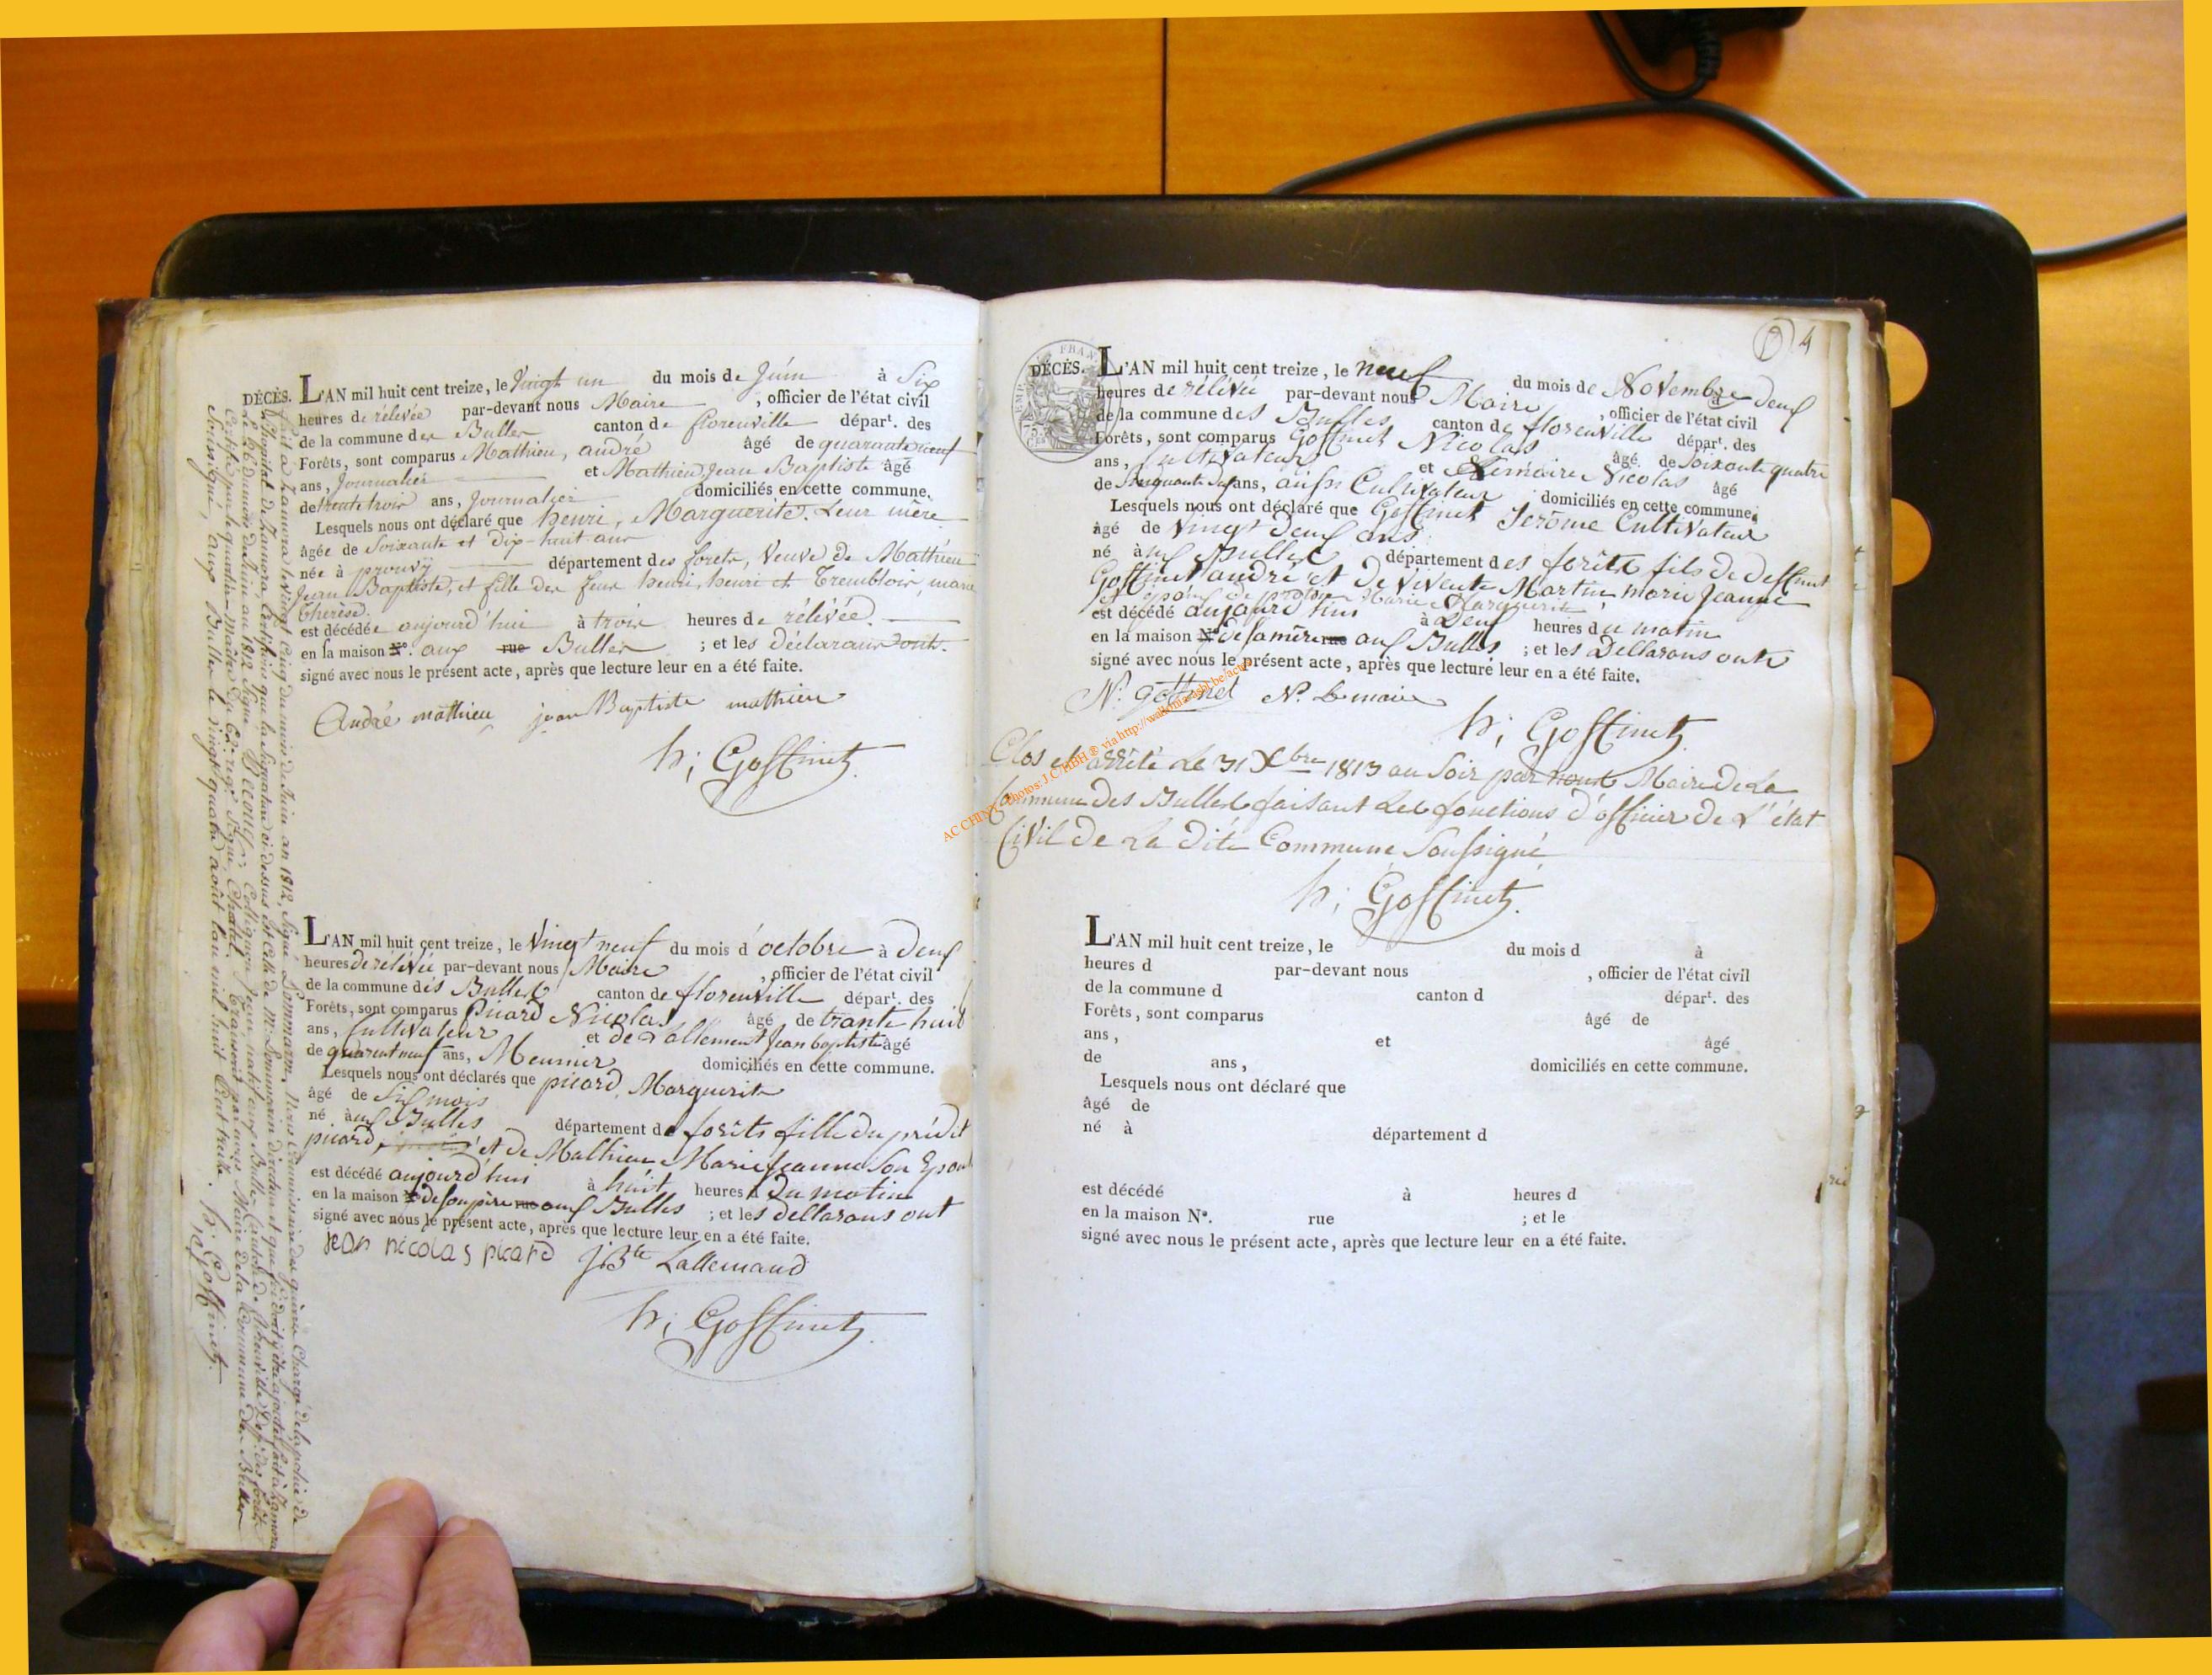 DÉCÈS. L'AN mil huit cent treize, le Vingt un du mois de Juin à Six
heures de rélevée par-devant nous Maire, officier de l'état civil
de la commune des Bulles canton de florenville départ. des
Forêts, sont comparus Mathieu, andré âgé de quarante neuf
ans, Journalier et Mathieu, Jean Baptiste âgé
de trente trois ans, Journalier domiciliés en cette commune.
Lesquels nous ont déclaré que henri, Marguerite. Leur mère
âgée de Soixante et dix-huit ans
née à prouvy département des forets, Veuve de Mathieu
Jean Baptiste, et fille des feux henri, henri et Tremblois, marie
Therèse.
est décédée aujourd'hui à trois heures de rélévée.
en la maison N°. aux rue Bulles ; et les Déclarans ont
signé avec nous le présent acte, après que lecture leur en a été faite.
André mathieu jean Baptiste mathieu
h; Goffinet
L'AN mil huit cent treize, le Vingt neuf du mois d'octobre à Deux
heures de relévée par-devant nous Maire, officier de l'état civil
de la commune des Bulles canton de florenville départ. des
Forêts, sont comparus Picard Nicolas âgé de trante huit
ans, Cultivateur et de Lallement Jean baptiste âgé
de quarent neuf ans, Meunier domiciliés en cette commune.
Lesquels nous ont déclarés que picard, Marguerite
âgé de Six mois
né aux Bulles département de forêts fille du prédit
picard, et de Mathieu Marie Jeanne Son Epouse
est décédé aujourd'hui à huit heures du matin
en la maison N° de Son père rue aux Bulles ; et les dellarans ont
signé avec nous le présent acte, après que lecture leur en a été faite.
jean nicolas picard J. Bte Lallemand
h; Goffinet
fait à Zamora le vingt cinq du mois de Juin an 1812, Signé Lommarin. Nous Commissaire des guerres Chargé de la police de
L'hopital de Zamora, Certifions que la Signature ci dessus est celle de M. Lommarin directeur et que foi doit y être ajoutée fait à Zamora
aux Bulles le vingt quatre août l'an mil huit Cent treize. h; Goffinet
④ 4
DÉCÈS. L'AN mil huit cent treize, le neuf du mois de Novembre à Deux
heures de rélévée par-devant nous Maire, officier de l'état civil
de la commune des Bulles canton de florenville départ. des
Forêts, sont comparus Goffinet Nicolas âgé de Soixante quatre
ans, Cultivateur et Lemaire Nicolas âgé
de ans, aussi Cultivateur domiciliés en cette commune.
Lesquels nous ont déclaré que Goffinet Jerôme Cultivateur
âgé de Vingt deux ans
né aux Bulles département des forêts fils de deffunt
Goffinet andré et de Vivente Martin, marie Jeanne
et époux de Marie Marguerite
est décédé aujourd'hui à Deux heures du matin
en la maison N° de Sa mère rue aux Bulles ; et les Dellarans ont
signé avec nous le présent acte, après que lecture leur en a été faite.
N. goffinet N. Lemaire
h; Goffinet
Clos et arrêté Le 31 Xbre 1813 au Soir par nous Maire De La
Commune Des Bulles faisant Les fonctions d'officier De L'état
Civil de La dite Commune Soussigné
h; Goffinet
AC CHINY Photos: J.C/HBH ® via http://wallonia.asgh.be/actes
L'AN mil huit cent treize, le du mois d à
heures d par-devant nous , officier de l'état civil
de la commune d canton d départ. des
Forêts, sont comparus âgé de
ans, et âgé
de ans, domiciliés en cette commune.
Lesquels nous ont déclaré que
âgé de
né à département d
est décédé à heures d
en la maison N°. rue ; et le
signé avec nous le présent acte, après que lecture leur en a été faite.